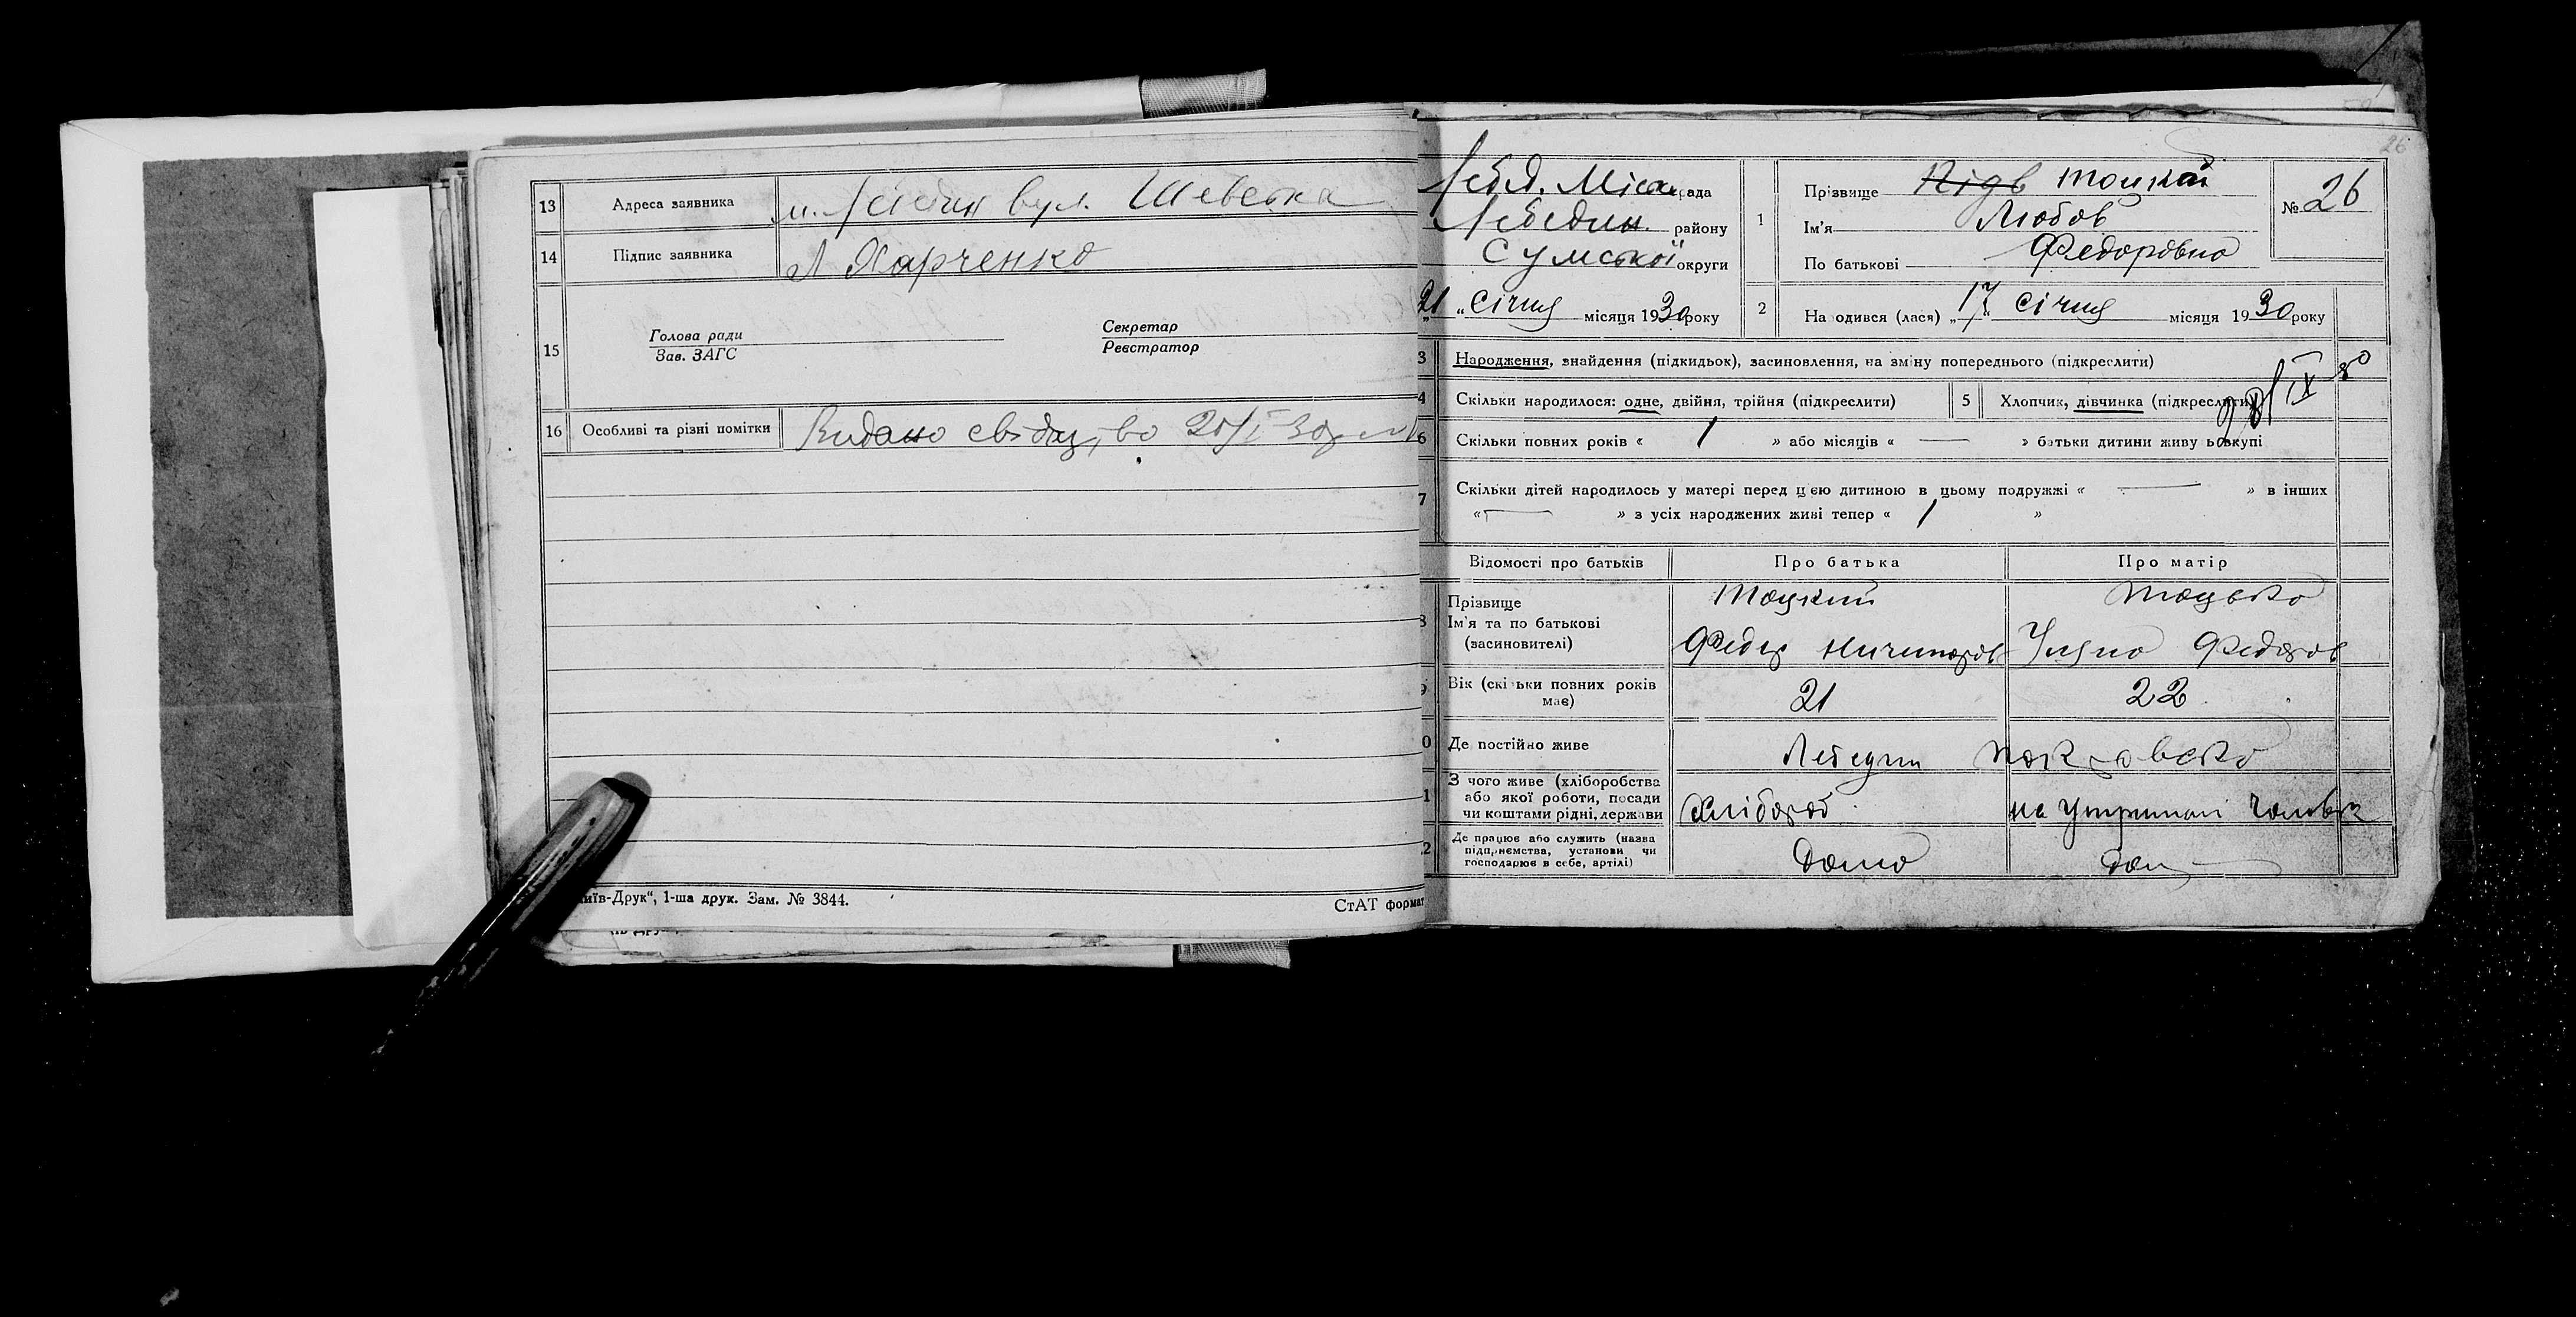 13 Адреса заявника м. Лебедин вул. Шевська
14 Підпис заявника Л Харченко
15 Голова ради
Зав. ЗАГС
Секретар
Реєстратор
16 Особливі та різні помітки Видано свідоцтво 21/I 30р
Київ-Друк“, 1-ша друк. Зам. № 3844.
СтАТ формат
26
Лебед. Міськрада
Лебедин. району
Сумської округи
21 „ Січня місяця 1930 року
1 Прізвище Підв Тоцкий
Ім'я Любов
По батькові Федоровна
№ 26
2 На одився (лася) „17“ Січня місяця 1930 року
3 Народження, знайдення (підкидьок), засиновлення, на зміну попереднього (підкреслити)
4 Скільки народилося: одне, двійня, трійня (підкреслити) 5 Хлопчик, дівчинка (підкреслити)
28/IX 80
6 Скільки повних років « 1 » або місяців « — » батьки дитини живу ь вкупі
7 Скільки дітей народилось у матері перед цією дитиною в цьому подружжі « — » в інших
« — » з усіх народжених живі тепер « 1 »
Відомості про батьків Про батька Про матір
8 Прізвище Тоцкий Тоцька
Ім'я та по батькові
(засновителі) Федір Ничипоров Федоров
9 Вік (скі ьки повних років
має) 21 22
0 Де постійно живе Лебедин
1 З чого живе (хліборобства
або якої роботи, посади
чи коштами рідні, держави Хлібороб на утриман чоловіка
2 Де працює або служить (назва
підприємства, установи чи
господарює в себе, артілі) Дома дом